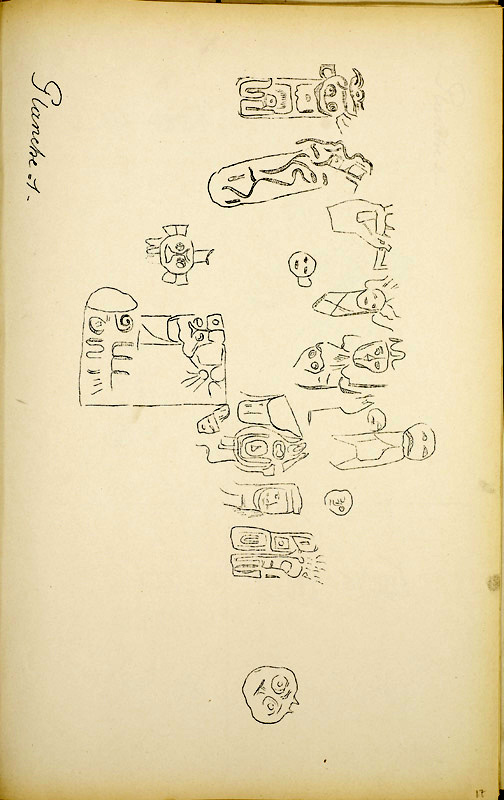 Planche 1-
17